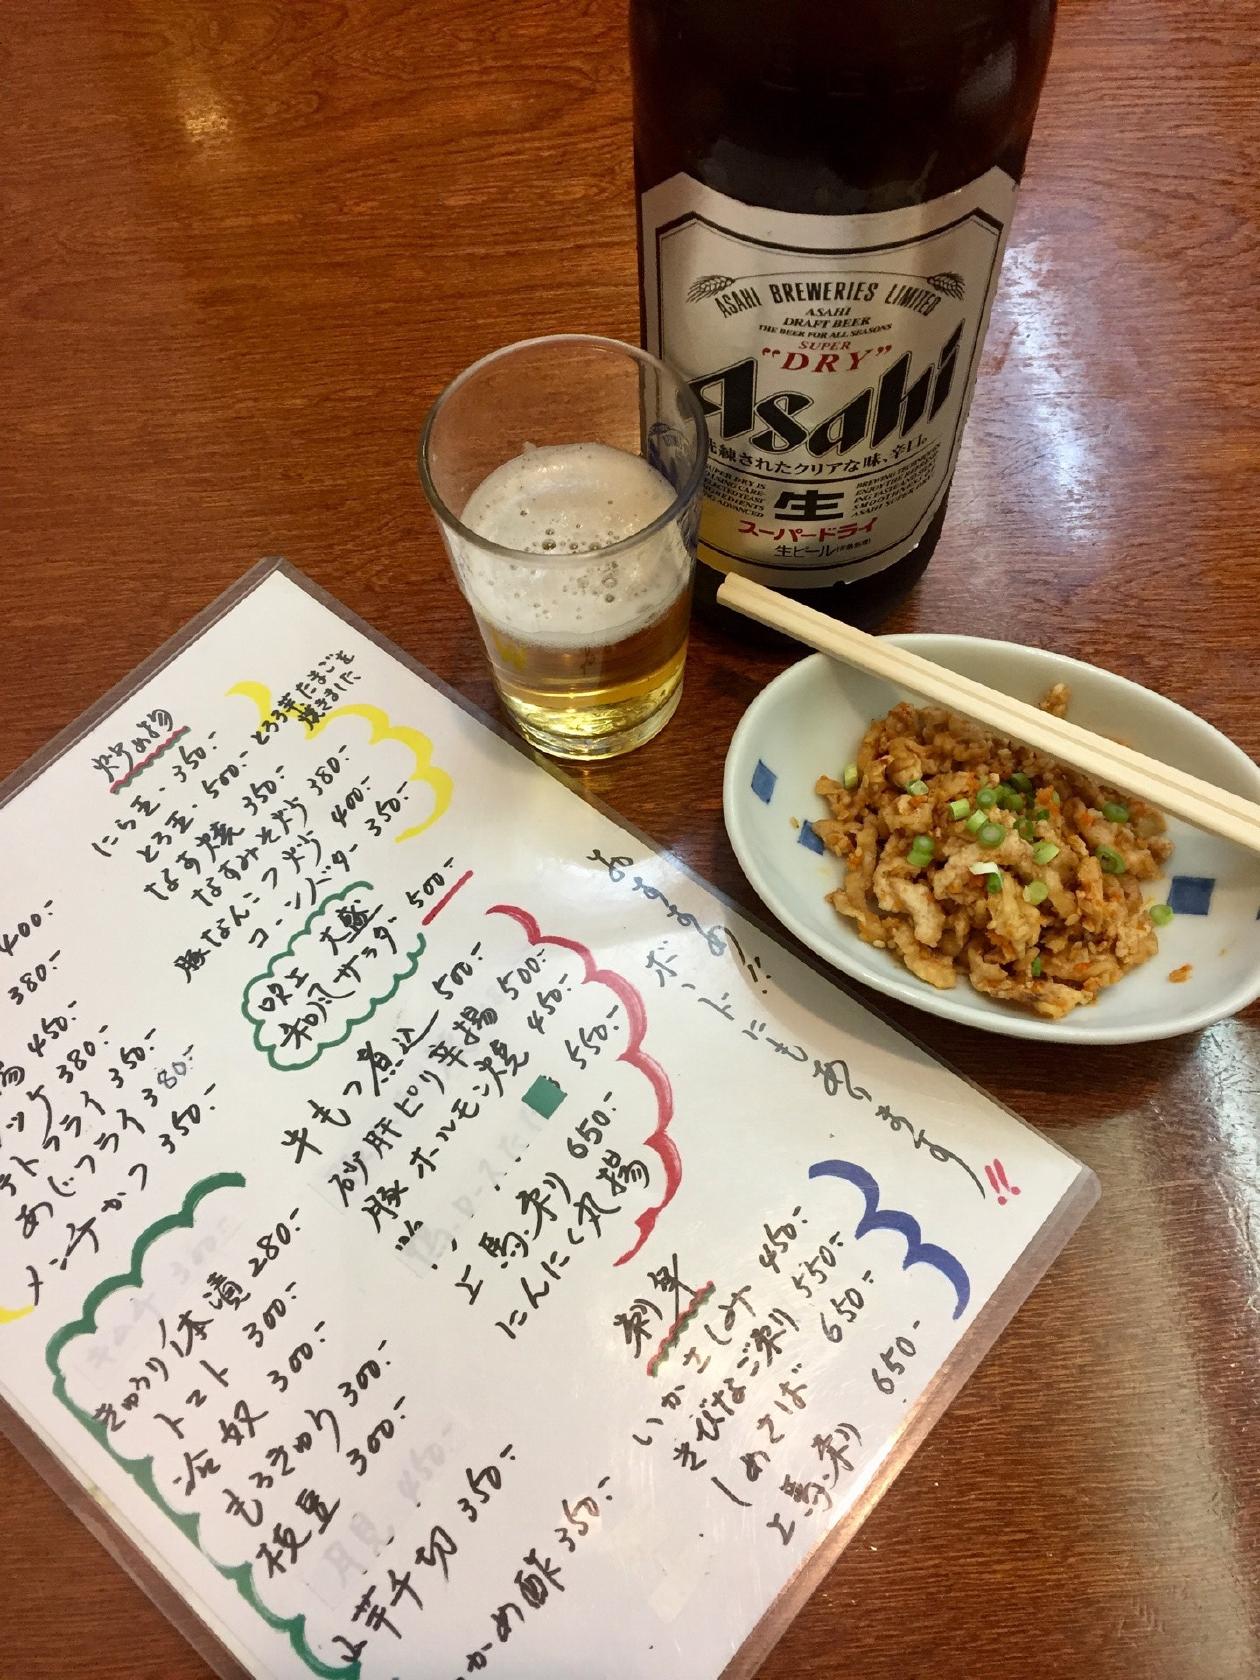 ASAHI BREWERIES LIMITED
ASAHI
DRAFT BEER
THE BEER FOR ALL SEASONS
SUPER
"DRY"
Asahi
洗練されたクリアな味、辛口。
生
スーパードライ
生ビール
炒め物
にら玉 350.-
とろ玉 500.- とろろ芋たまごを
焼きました
なす焼 350.-
なすみそ炒 380.-
豚なんこつ炒 400.-
コーンバター 350.-
大盛
和風サラダ 500.-
牛もつ煮込 500.-
砂肝ピリ辛揚 500.-
豚ホルモン焼 450.-
550.-
上馬刺 650.-
にんにく丸揚
おすすめ!! ボードにもあります!!
刺身
いかさしみ 450.-
きびなご刺 550.-
しめさば 650.-
上馬刺 650.-
400.-
380.-
450.-
380.-
トフライ 350.-
あじフライ 380.-
メンチかつ 350.-
きゅうり1本漬 280.-
トマト 300.-
冷奴 300.-
もろきゅう 300.-
枝豆 300.-
山芋千切 350.-
かめ酢 350.-